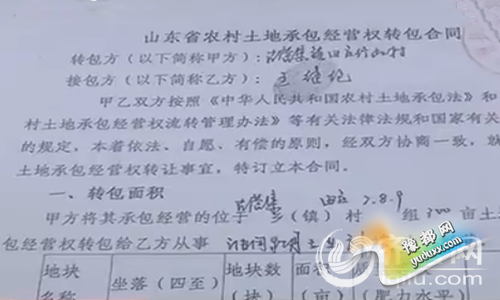 山东省农村土地承包经营权转包合同
转包方（以下简称甲方）：
接包方（以下简称乙方）：王继纪
甲乙双方按照《中华人民共和国农村土地承包法》和
村土地承包经营权流转管理办法》等有关法律法规和国家有关
的规定，本着依法、自愿、有偿的原则，经双方协商一致，就
土地承包经营权转让事宜，特订立本合同。
一、转包面积
甲方将其承包经营的位于 乡（镇） 村 7.8.9 组300亩土
包经营权转包给乙方从事
地块 坐落（四至） 地块数 面积
名称 （块） （亩） （肥力水平）
豫都网
yubuxx.com